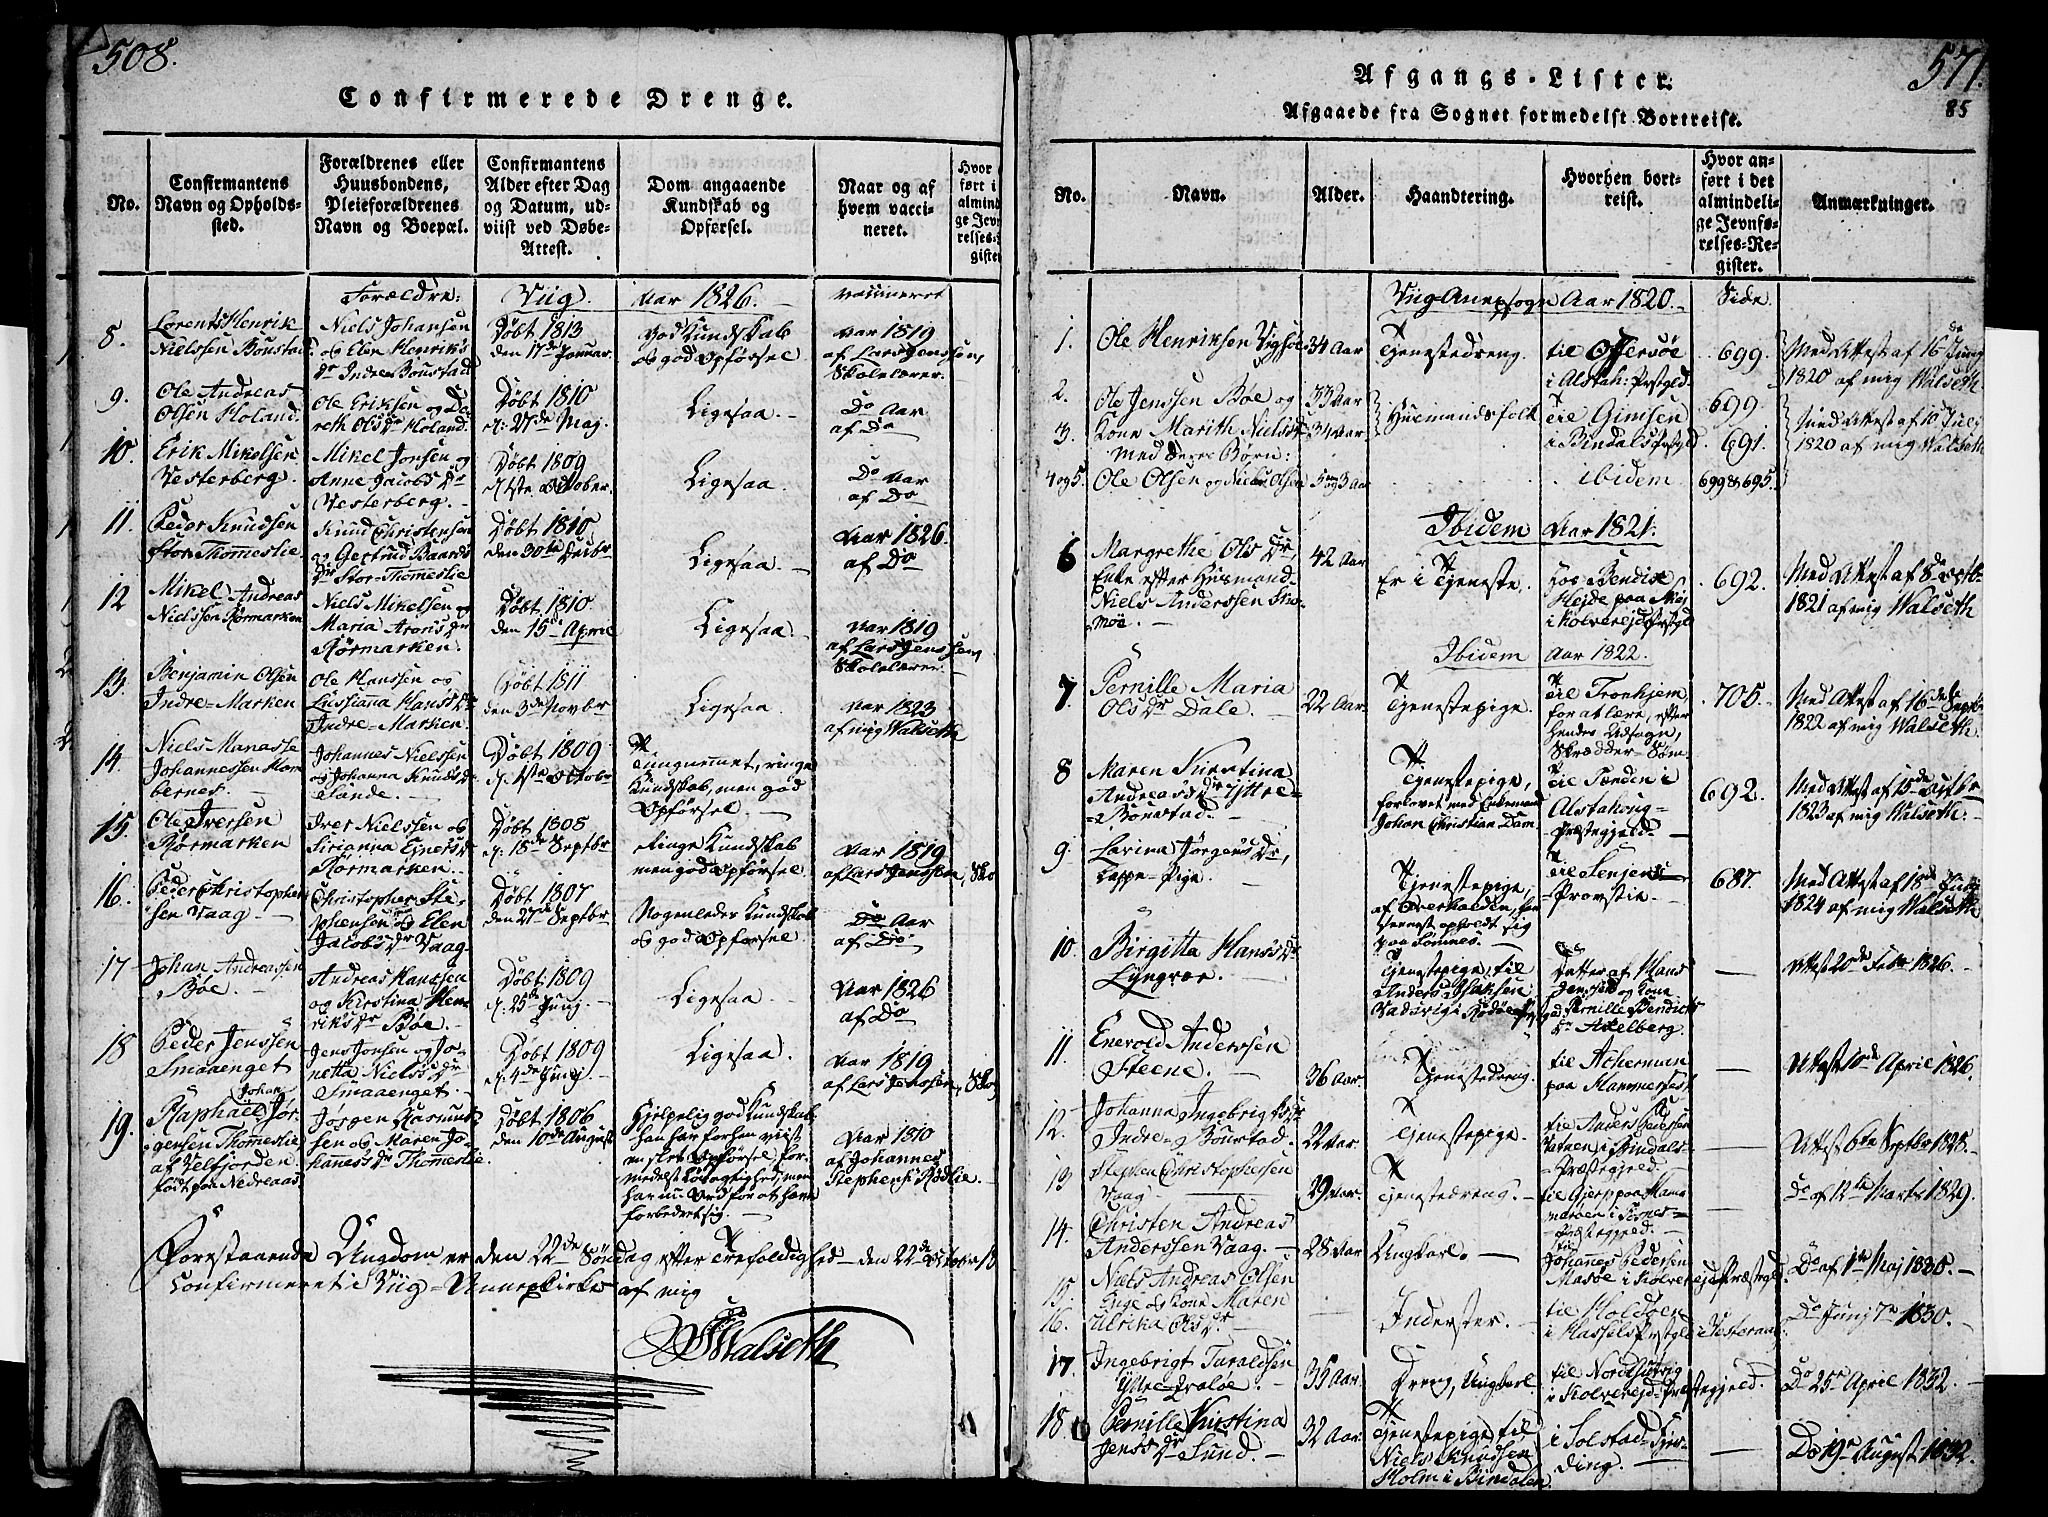 508.
Confirmerede Drenge.
No.
Confirmantens
Navn og Opholds-
sted.
Forældrenes eller
Huusbondens,
Pleieforældrenes
Navn og Boepæl.
Confirmantens
Alder efter Dag
og Datum, ud-
viist ved Døbe-
Attest.
Dom angaaende
Kundskab og
Opførsel.
Naar og af
hvem vacci-
neret.
Hvor
ført i
almind
ge Jevn
relses-
gister
Forældre:
Viig.
Aar 1826.
vaccineret
8.
Lorents Henrik
Nielssen Boustad.
Niels Johansen
og Elen Henriks
Dr Indre Boustad
Døbt 1813
den 17de Januar.
God Kundskab
og god Opførsel
Aar 1819
af Lars Jenssen,
Skolelærer.
9.
Ole Andreas
Olsen Holand.
Ole Eriksen og De-
reth Ols Dr Holand.
Døbt 1810
d. 27de Maj.
Ligesaa.
Do Aar
af Do
10.
Erik Mikelsen
Vesterberg.
Mikel Jonsen og
Anne Jacobs Dr
Vesterberg.
Døbt 1809
d. 1ste October.
Ligesaa.
Do Aar
af Do
11.
Peder Knudsen
Stor-Thomeslie.
Knud Christensen
og Gertrud Baards
Dr Stor-Thomeslie
Døbt 1810
den 30te Decbr
Ligesaa.
Aar 1826.
af Do
12
Mikel Andreas
Nielssen Rørmarken
Niels Mikelsen og
Maria Arons Dr
Rørmarken.
Døbt 1810.
den 15de April
Ligesaa.
Aar 1819
af Lars Jenssen
Skolelærer.
13.
Benjamin Olsen
Indre-Marken
Ole Hanssen og
Lussianna Hans Dr
Indre-Marken.
Døbt 1811
den 3de Novbr
Ligesaa.
Aar 1823
af mig Walseth
14.
Niels Manasse
Johannessen Hom
bernes.
Johannes Nielssen
og Johanna Knuds Dr
Døbt 1809.
d. 1ste Octobr
Tungnemmet, ringe
Kundskab, men god
Opførsel.
15.
Ole Iversen
Rørmarken
Iver Nielssen og
Sirianna Ejners Dr
Rørmarken.
Døbt 1808
d. 18de Septbr
Ringe Kundskab
men god Opførsel.
Aar 1819
af Lars Jenssen, Sko
16.
Peder Christopher
sen Vaag
Christopher Ste-
phensen og Elen
Jacobs Dr Vaag
Døbt 1807
den 27de Septbr
Nogenledes Kundskab
og god Opførsel.
Do Aar
af Do
17
Johan Andreassen
Bøe.
Andreas Hanssen
og Kirstina Hen-
riks Dr Bøe.
Døbt 1809
d. 25de Junj.
Ligesaa
Aar 1826
af Do
18
Peder Jenssen
Smaaenget
Jens Jonsen og Jo-
netta Niels Dr
Smaaenget.
Døbt 1809
d. 4de Junj.
Ligesaa.
Aar 1819
af Lars Jenssen, Sko
19.
Johan
Raphael Jør-
gensen Thomeslie
af Velfjorden
født paa Nedreaas.
Jørgen Rasmus-
sen og Maren Jo-
hannes Dr Thomeslie.
Døbt 1806
den 10de August
Hjelpelig god Kundskab
han har forhen viist
en slet Opførsel, for-
medelst Løsagtighed, men
har nu Ord for at have
forbedret sig.
Aar 1810
af Johannes
Stephens: Rødlie.
Forestaaende Ungdom er den 22de Søndag efter Trefoldighed den 22de October 18
Confirmeret i Viig-Annexkirke af mig
Walseth
571.
85
Afgangs-Lister.
Afgaaede fra Sognet formedelst Bortreise.
No.
Navn.
Alder.
Haandtering.
Hvorhen bort-
reist.
Hvor an-
ført i det
almindeli-
ge Jevnfø-
relses-Re-
gister.
Anmærkninger.
Viig Anexsogn Aar 1820.
Side.
1.
Ole Henriksen Vigsøe
34 Aar
Tjenestedreng.
til Offersøe
i Alstah: Prstgld.
699.
Med Attest af 16de Junj
1820 af mig Walseth
2.
Ole Jenssen Bøe og
33 Aar
Huusmandsfolk
til Gimsen
i Bindals Prstgld
699
Med Attest af 10de Julj
1820 af mig Walseth
3.
Kone Marith Niels Dr
34 Aar
691.
Med deres Børn:
4 og 5.
Ole Olsen og Niels Olsen
5 og 3 Aar
ibidem
699 & 695.
Ibidem Aar 1821.
6
Margrethe Ols Dr,
Enke efter Husmand
Niels Anderssen Sno-
møe.
42 Aar
Er i Tjeneste.
Hos Bendix
Hejde paa Møj
i Kolverejds Prstgld
692.
Med Attest af 8de Octb
1821 af mig Walseth
Ibidem Aar 1822.
7.
Pernille Maria
Ols Dr Dale.
22 Aar.
Tjenestepige.
til Tronhjem
for at lære, efter
hendes Udsagn,
Skrædder-Søm.
705.
Med Attest af 16de Septb
1822 af mig Walseth.
8
Maren Kirstina
Andreas Dr Yttre-
Boustad.
Tjenestepige,
forlovet med Enkemand
Johan Christian Dam
til Tenden i
Alstahoug-
Præstegjeld.
692.
Med Attest af 15de Octbr
1823 af mig Walseth.
9
Larina Jørgens Dr,
Lappe-Pige.
Tjenestepige,
af Overhalden, har
senest opholdt sig
paa Sømnes.
til Senjens
Provstie.
687.
Med Attest af 18de Junj
1824 af mig Walseth
10
Birgitta Hans Dr
Lyngvær.
Tjenestepige, til
Anders Isaksen
Vadsvig i Rødøe Prstgld
Datter af Hans
Jenssen og Kone
Pernille Bendicts
Dr Axelberg.
Attest 20de Febr 1826.
11.
Enevold Anderssen
Steene.
36 Aar.
Tjenestedreng.
til Acherman
paa Hammernes.
Attest 10de April 1826.
12.
Johanna Ingebrigts Dr
Indre Boustad.
22 Aar.
Tjenestepige.
til Anders Pedersen
i Bindals-
Præstegjeld.
Attest 6te Septbr 1828.
13
Stephen Christophersen
Vaag
29 Aar.
Tjenestedreng.
til Gjerp paa Hana
marøen i Tysnes
Præstegjeld.
Do af 12te Marts 1829.
14.
Christen Andreas
Anderssen Vaag.
28 Aar
Ungkarl.
til
Johannes Pedersen
Masøe i Kolverejds Præstegld.
Do af 1ste Maj 1830.
15.
Niels Andreas Olsen
16.
og Kone Maren
Ulrika Ols Dr
Inderster.
til Holdøen
i Hassels Prstgld i Vesteraal
Do Junj 7de 1830.
17.
Ingebrigt Taraldsen
Yttre
35 Aar.
Dreng, Ungkarl
til Nordhusvig
i Kolverejds Præstegjeld.
Do 25de April 1832.
18.
Pernille Kirstina
Jens Dr Sund.
32 Aar.
Tjenestepige til
Niels Knudsen
Holm i Bindalen
i Solstad-Fjer-
ding.
Do 19de August 1832.